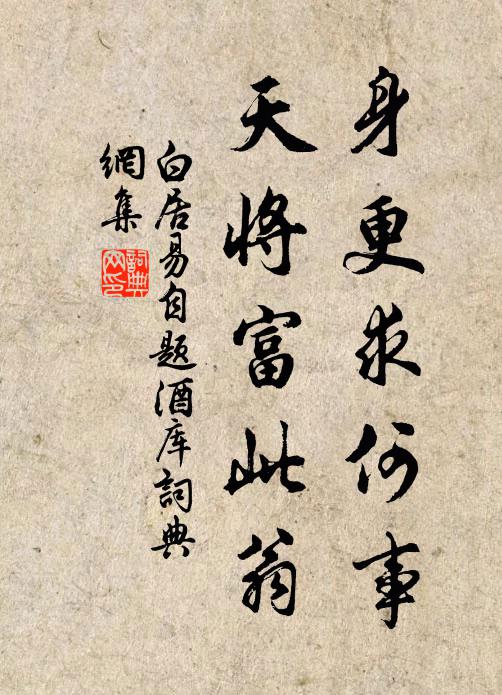 身更求何事
天將富此翁
白居易自题酒库詞典
網集
詞典
网印